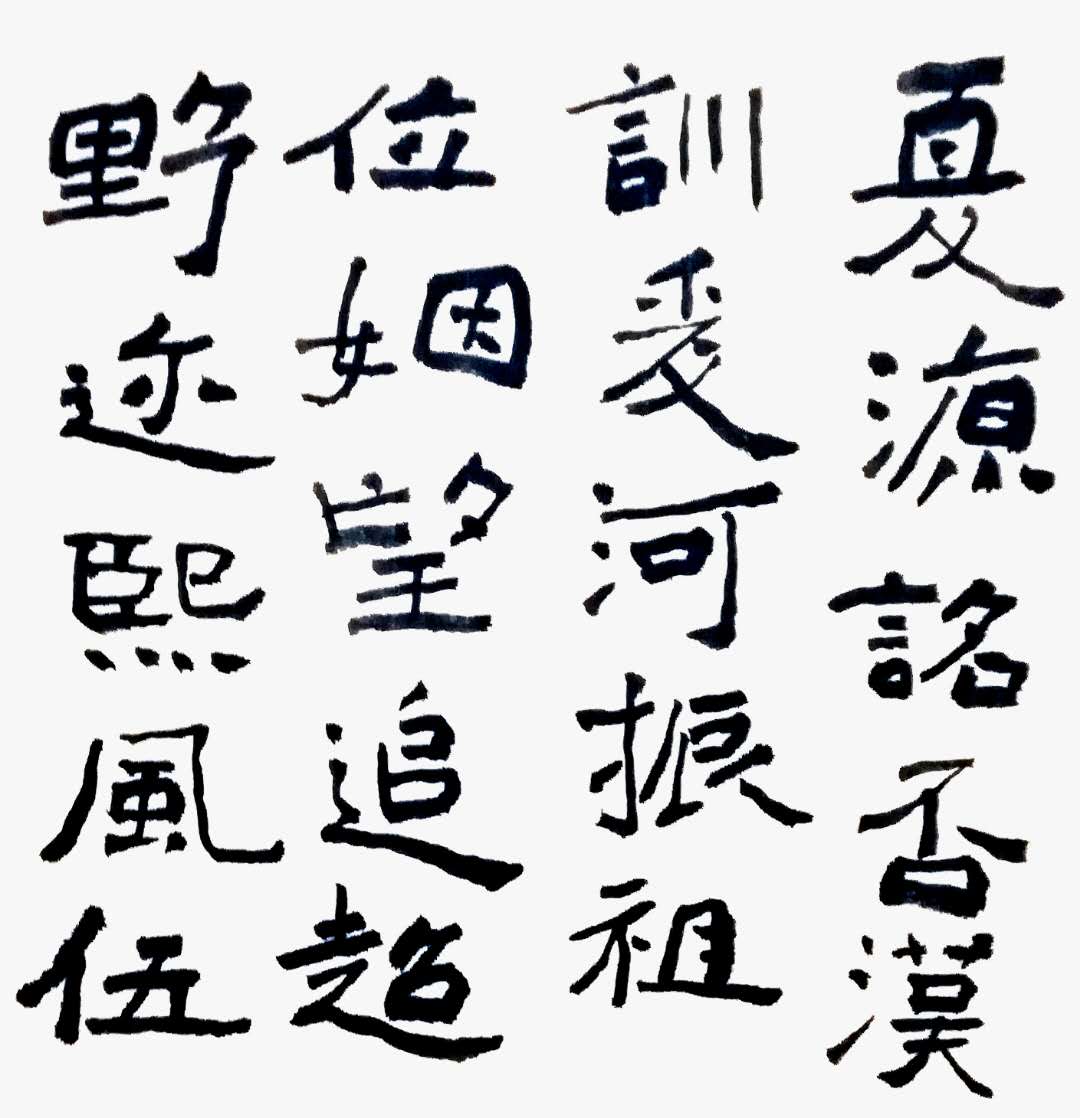 夏源詺否漢
訓爰河振祖
位姻望追超
野迩熙風伍